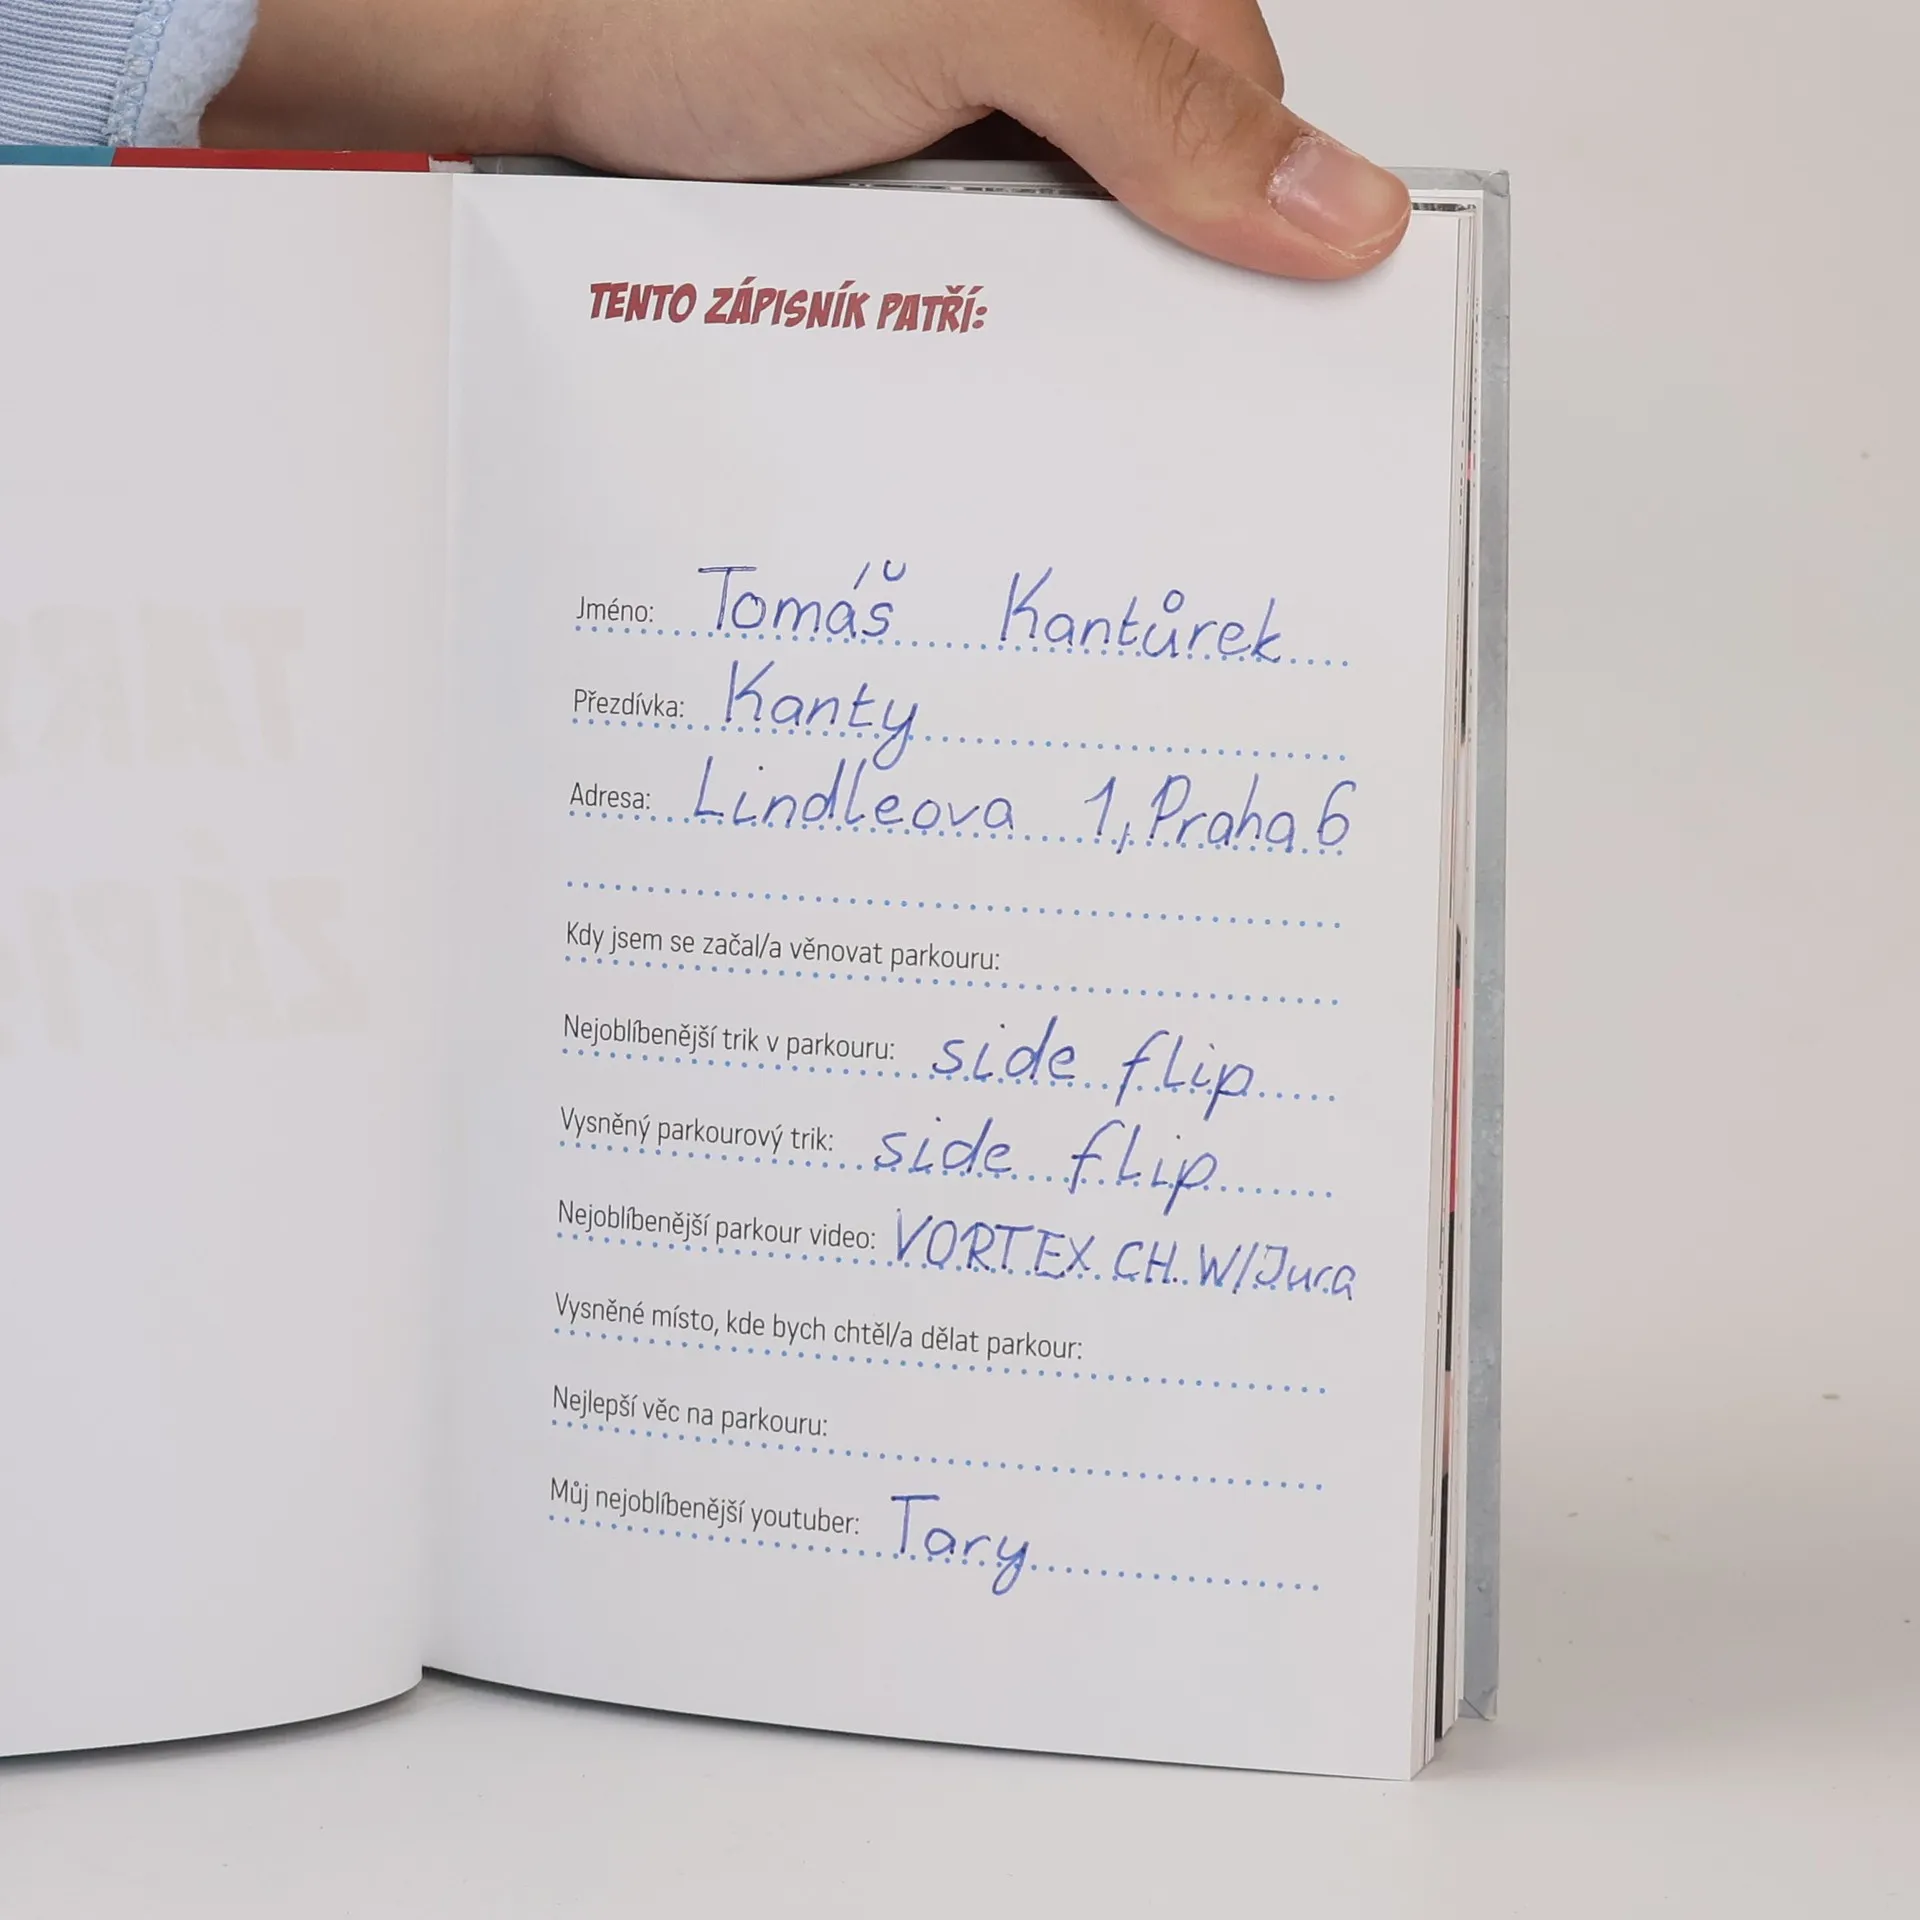 TENTO ZÁPISNÍK PATŘÍ:
Jméno: Tomáš Kantůrek
Přezdívka: Kanty
Adresa: Lindleova 1, Praha 6
Kdy jsem se začal/a věnovat parkouru:
Nejoblíbenější trik v parkouru: side flip
Vysněný parkourový trik: side flip
Nejoblíbenější parkour video: VORTEX CH W/Jura
Vysněné místo, kde bych chtěl/a dělat parkour:
Nejlepší věc na parkouru:
Můj nejoblíbenější youtuber: Tary